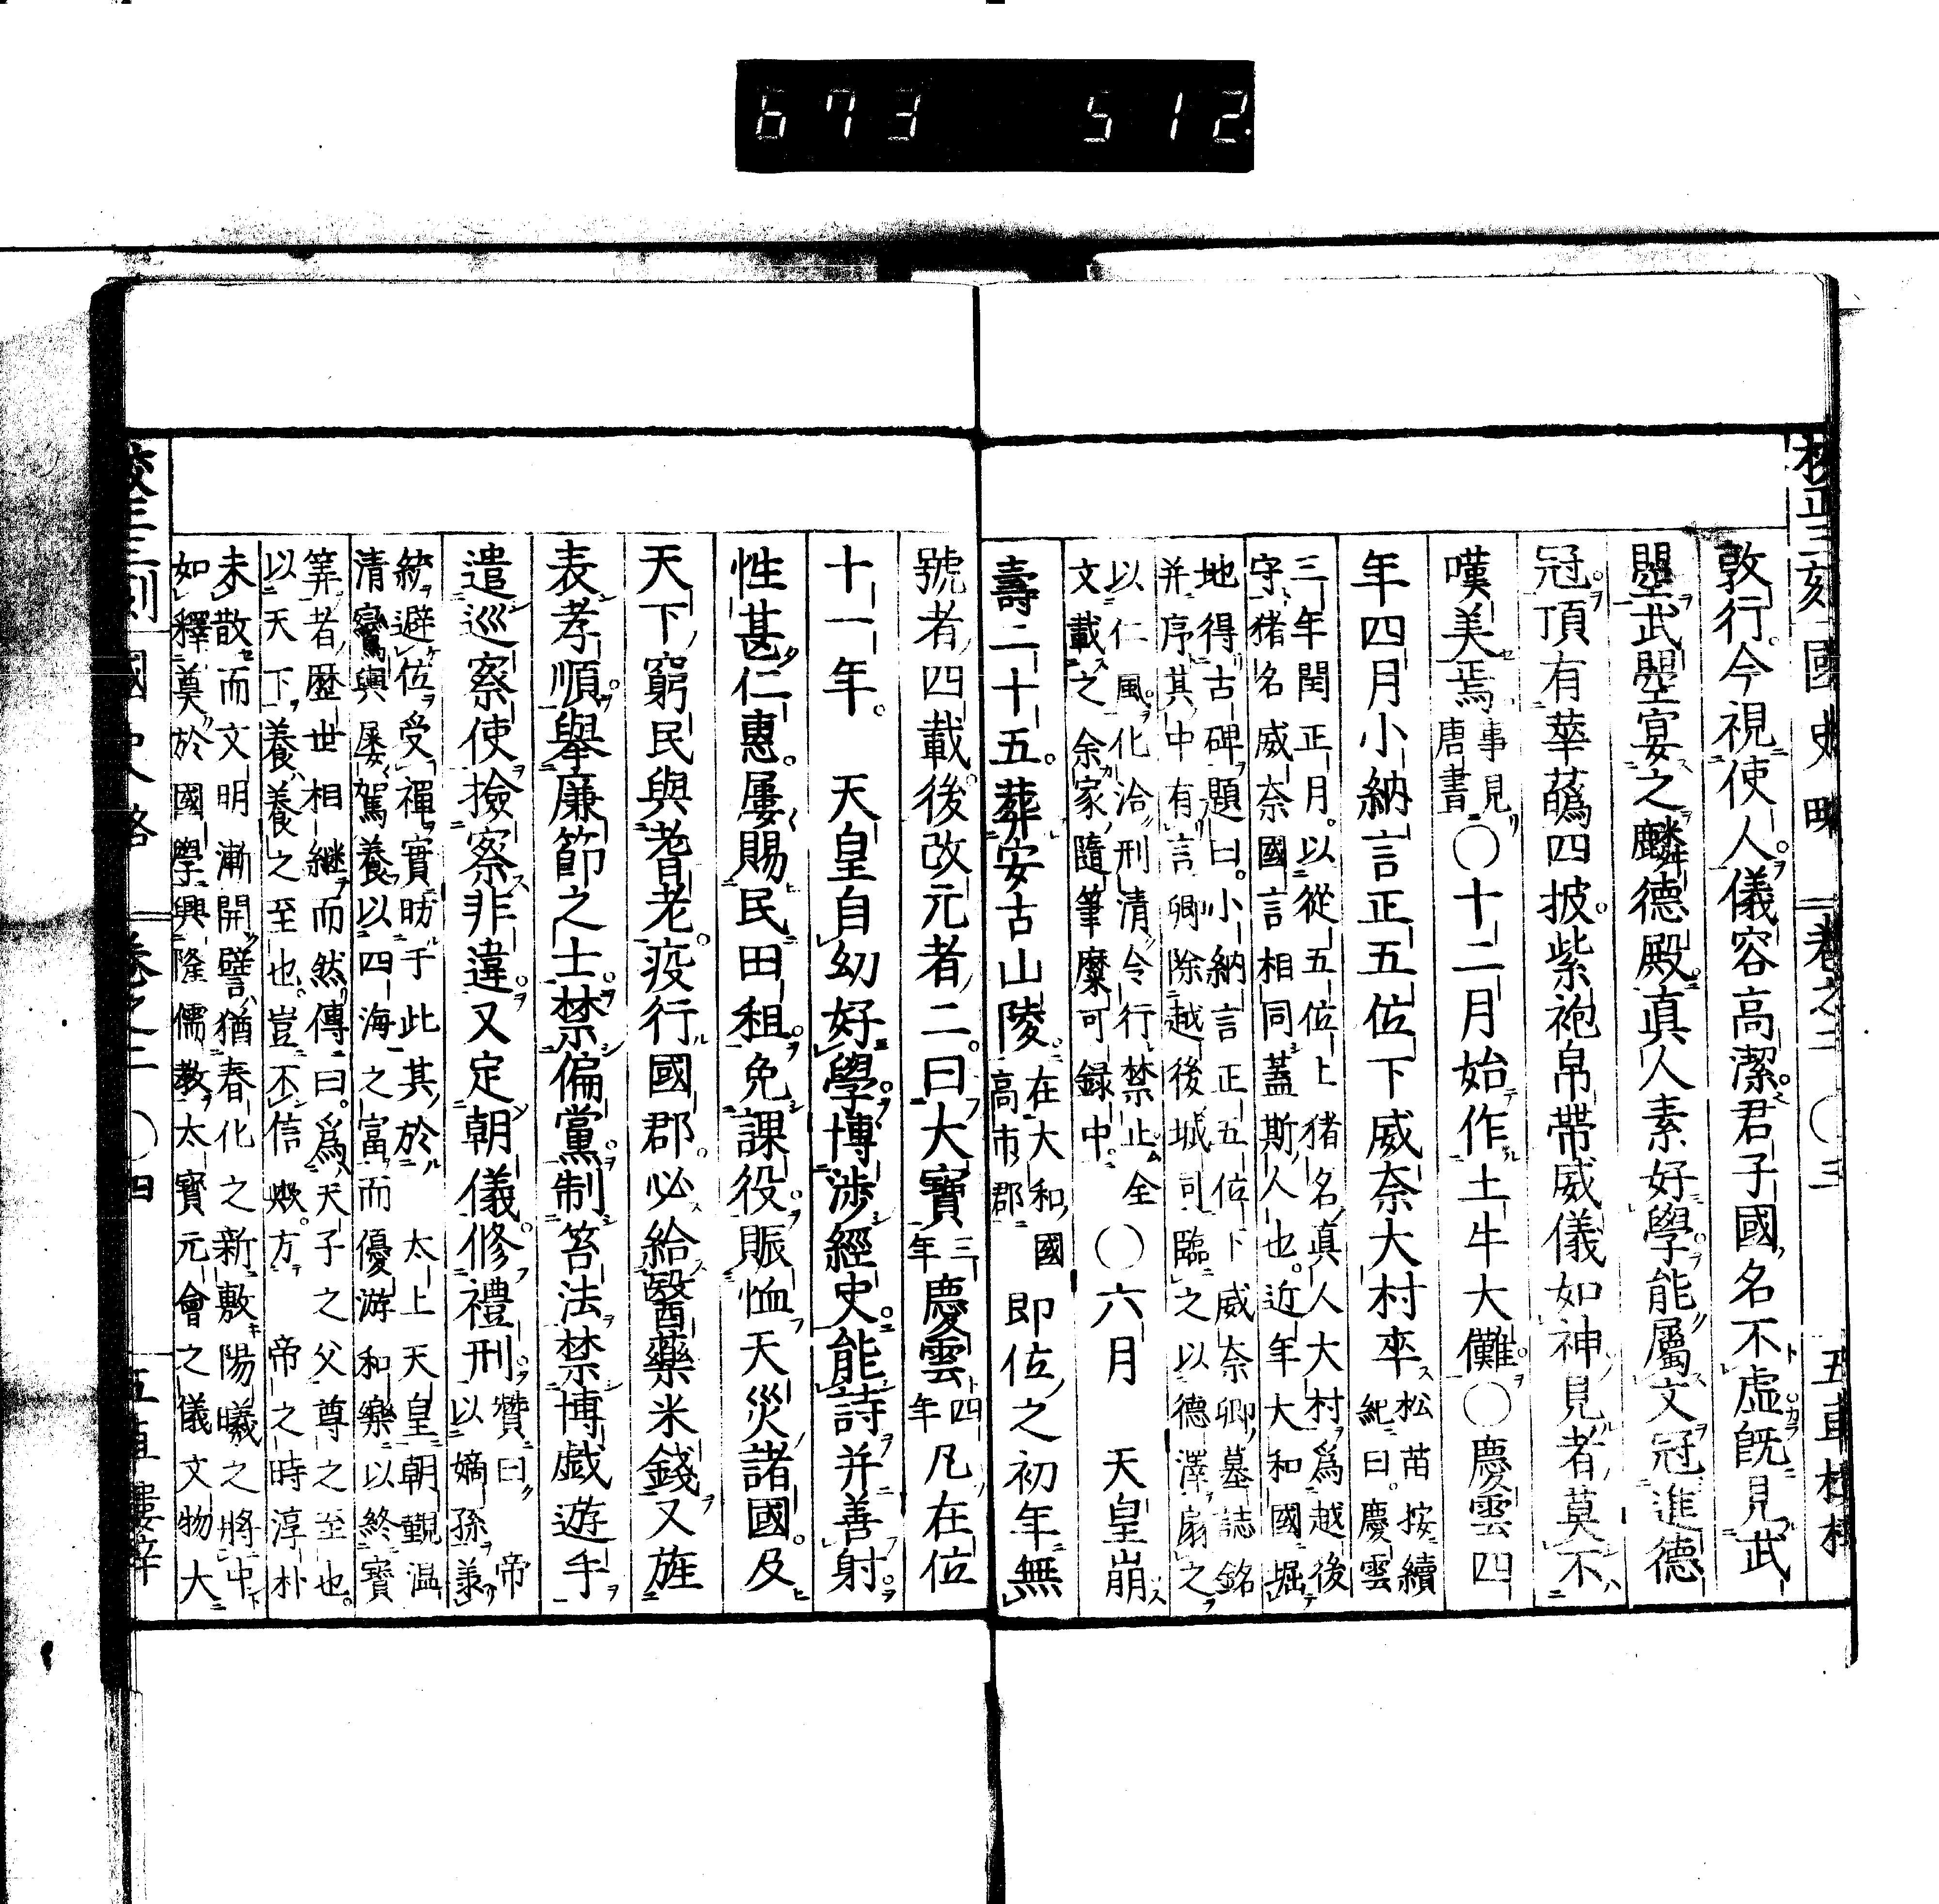 673 512
校正三刻國史略 卷之二 〇三 五車樓梓
敦行今視使人儀容高潔君子國名不虛既見武
曌武曌宴之麟德殿真人素好學能屬文冠進德
冠頂有華蘤四披紫袍帛帶威儀如神見者莫不
嘆美焉事見唐書〇十二月始作土牛大儺〇慶雲四
年四月小納言正五位下威奈大村卒松苗按續紀曰慶雲
三年閏正月以從五位上猪名真人大村爲越後
守猪名威奈國言相同蓋斯人也近年大和國堀
地得古碑題曰小納言正五位下威奈卿墓誌銘
并序其中有言卿除越後城司臨之以德澤扇之
以仁風化洽刑清令行禁止全
文載之余家隨筆糜可録中〇六月 天皇崩
壽二十五葬安古山陵在大和國高市郡 即位之初年無
號者四載後改元者二曰大寶三年慶雲四年凡在位
十一年 天皇自幼好學博涉經史能詩并善射
性甚仁惠屢賜民田租免課役賑恤天災諸國及
天下窮民與耆老疫行國郡必給醫藥米錢又旌
表孝順舉廉節之士禁偏黨制笞法禁博戲遊手
遣巡察使撿察非違又定朝儀修禮刑贊曰 帝以嫡孫兼
統避位受禪實昉于此其於 太上天皇朝覲温
清鸞輿屢駕養以四海之富而優游和樂以終寶
筭者歷世相繼而然傳曰爲天子之父尊之至也
以天下養養之至也豈不信歟方 帝之時淳朴
未散而文明漸開譬猶春化之新敷陽曦之將中
如釋奠於國學興隆儒教大寶元會之儀文物大
校正三刻國史略 卷之二 〇四 五車樓梓